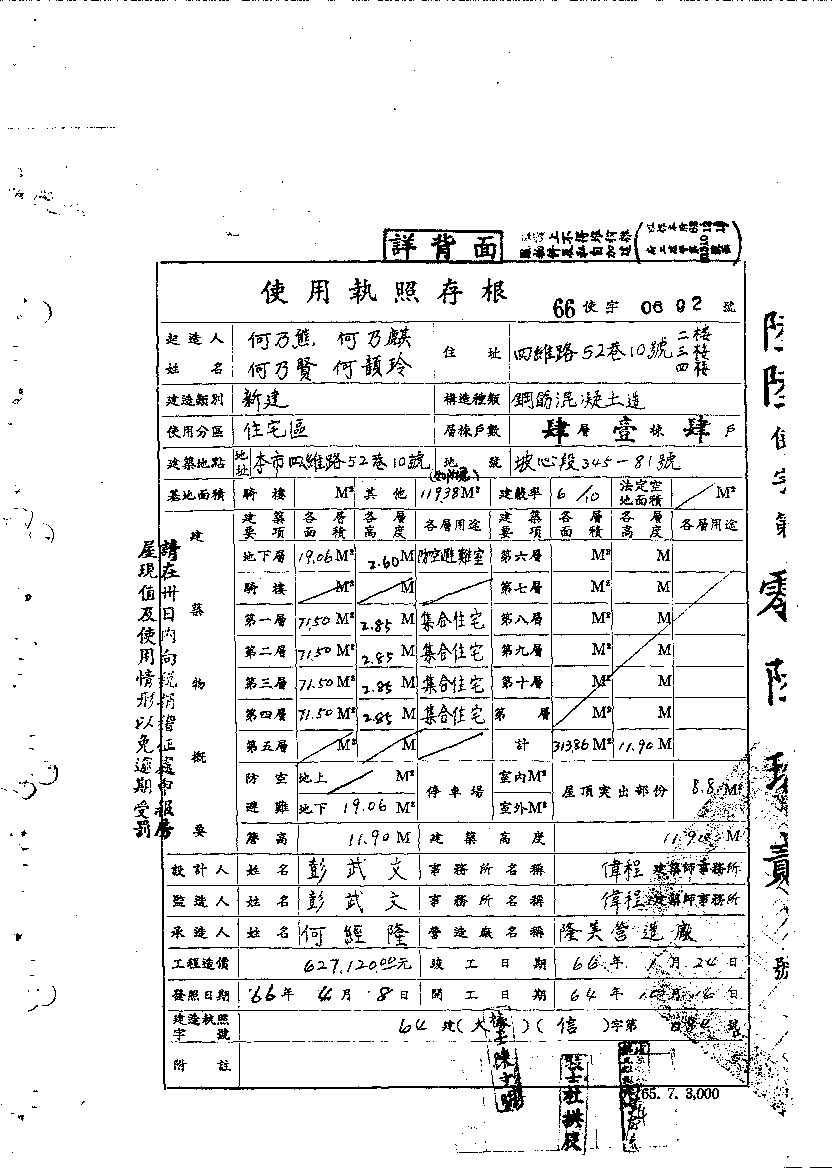 詳背面
使用執照存根
66 使字 0692 號
起造人姓名 何乃熊、何乃麒 何乃賢 何韻玲 住址 四維路52巷10號 二樓 三樓 四樓
建造類別 新建 構造種類 鋼筋混凝土造
使用分區 住宅區 層棟戶數 肆層 壹棟 肆戶
建築地點 地址 本市四維路52巷10號 地號 坡心段345-81號
基地面積 騎樓 M² 其他 119.38 M² 建蔽率 6/10 法定空地面積 M²
建築物概要
建築要項 各層面積 各層高度 各層用途 建築要項 各層面積 各層高度 各層用途
地下層 19.06 M² 2.60 M 防空避難室 第六層 M² M
騎樓 M² M 第七層 M² M
第一層 71.50 M² 2.85 M 集合住宅 第八層 M² M
第二層 71.50 M² 2.85 M 集合住宅 第九層 M² M
第三層 71.50 M² 2.85 M 集合住宅 第十層 M² M
第四層 71.50 M² 2.85 M 集合住宅 第 層 M² M
第五層 M² M 計 313.86 M² 11.90 M
防空避難 地上 M² 停車場 室內 M² 屋頂突出部份 8.8 M²
地下 19.06 M² 室外 M²
簷高 11.90 M 建築高度 11.90 M
設計人 姓名 彭武文 事務所名稱 偉程建築師事務所
監造人 姓名 彭武文 事務所名稱 偉程建築師事務所
承造人 姓名 何經隆 營造廠名稱 隆美營造廠
工程造價 627,120.00元 竣工日期 66年 1月 24日
發照日期 66年 4月 8日 開工日期 64年 月 日
建造執照字號 64 建(大)(信)字第 號
附註
65. 7. 3,000
請在卅日內向稅捐稽征處申報房
屋現值及使用情形以免逾期受罰
技士杜拱辰